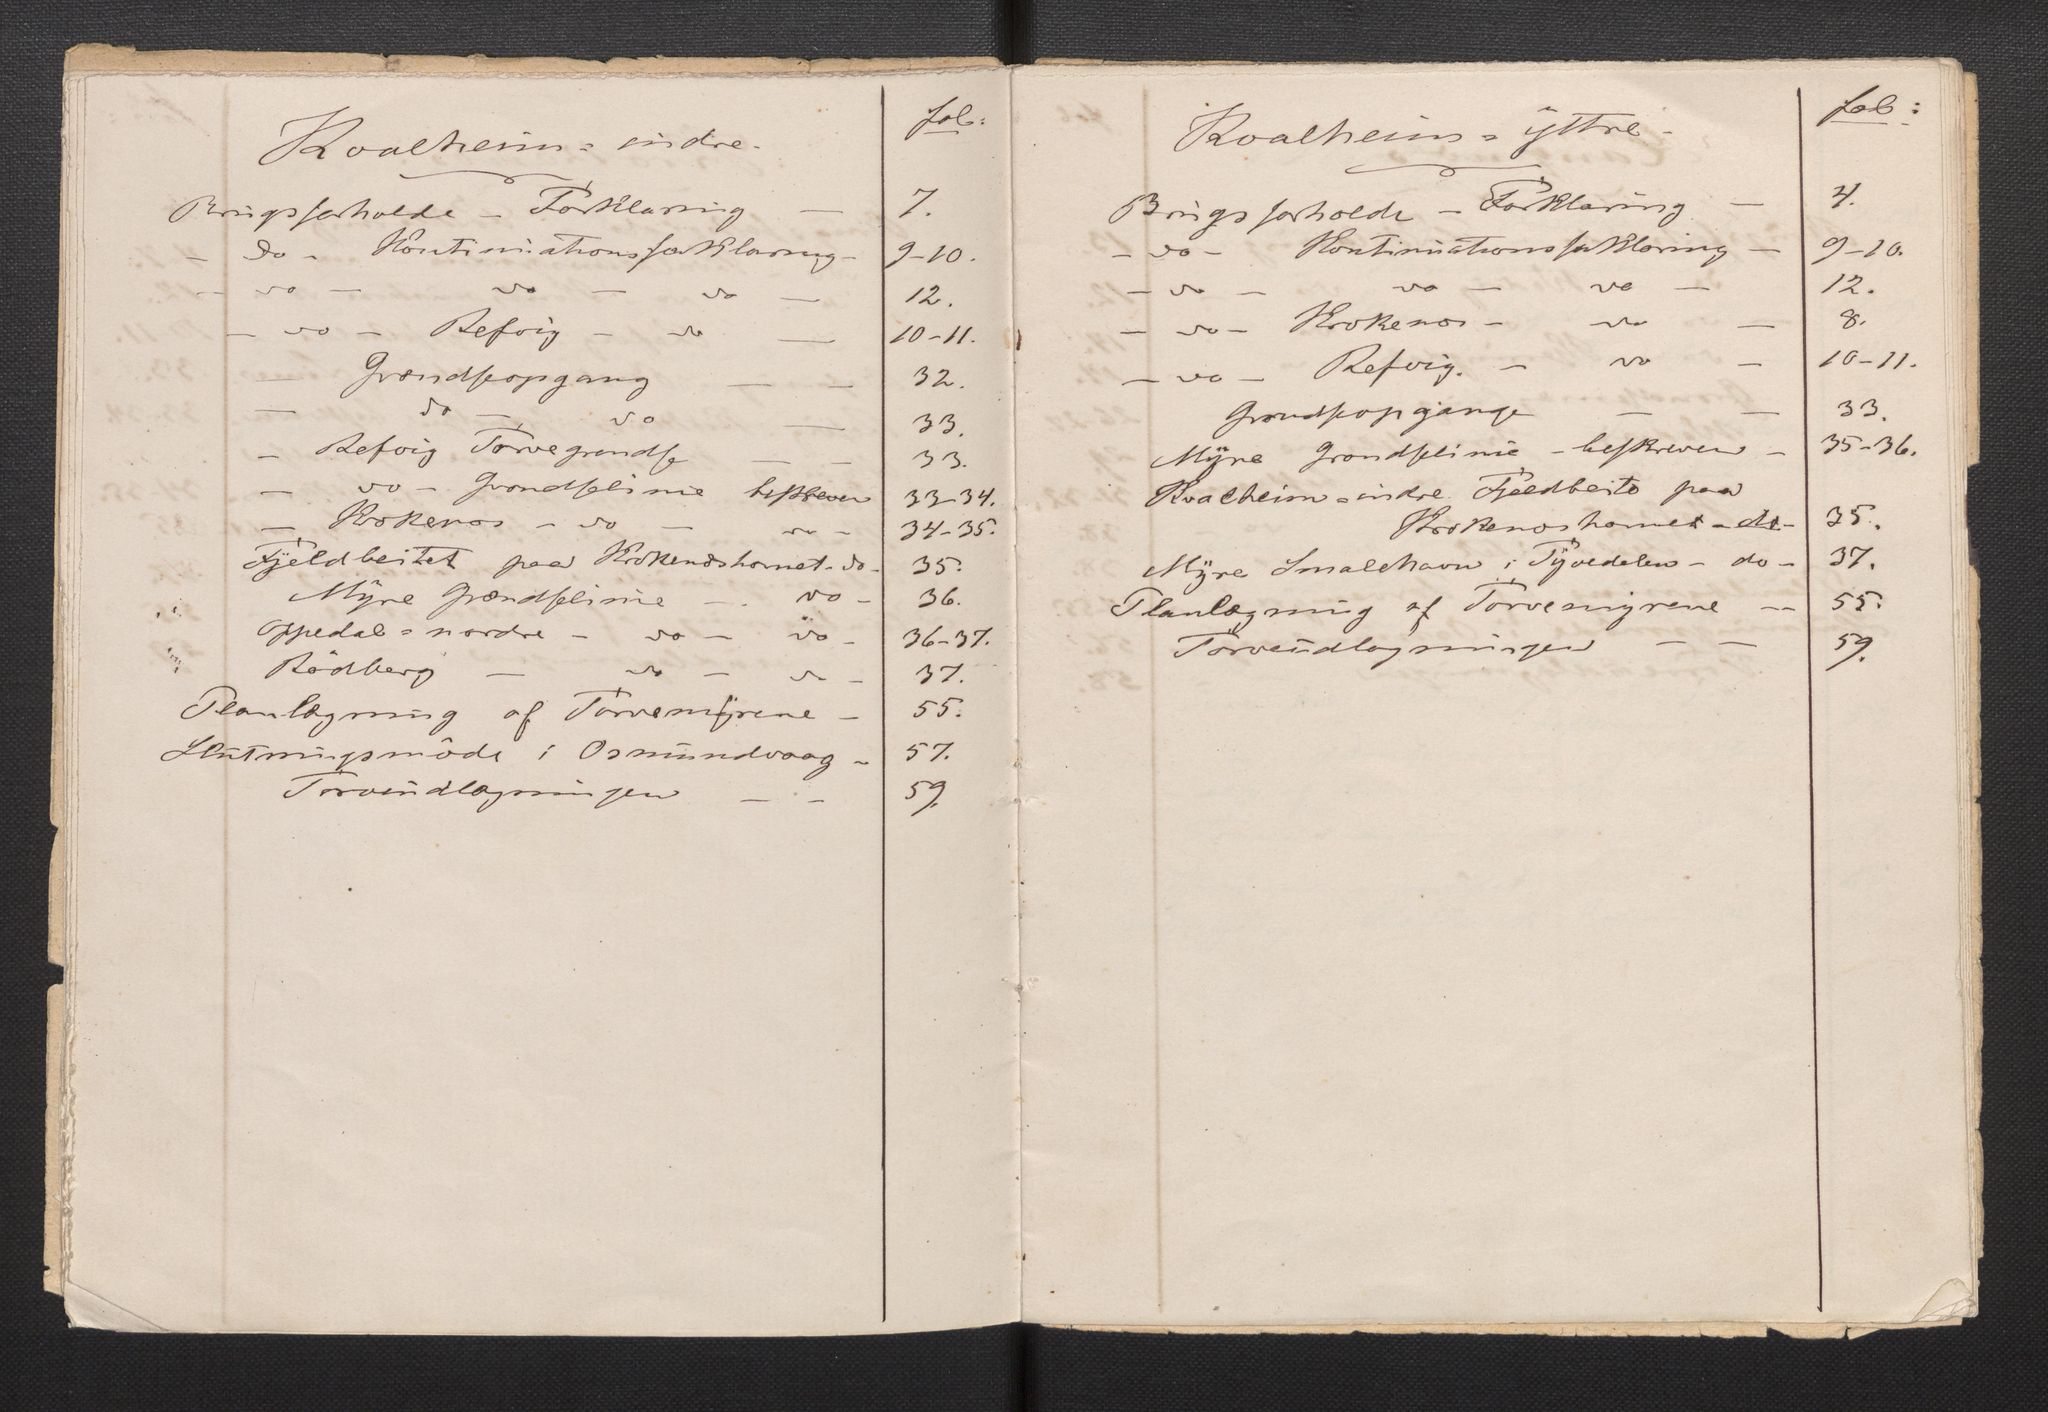 fol:
Kvalheim = indre.
Brugsforholde - Forklaring — 7.
- do - Kontinuationsforklaring - 9-10.
- do — do — do — 12.
- do — Refvig - do — 10-11.
— Grændseopgang — — 32.
— do — do — 33.
- Refvig Torvegrændse — - 33.
— do - Grændselinie beskreven 33-34.
— Krokenos - do — do - 34-35.
Fjeldbeitet paa Krokenoshornet - do - 35.
Myre Grændselinie — do - 36.
Oppedal = nordre - do - do - 36-37.
Rödberg — do - do - 37.
Planlægning af Torvemyrene - 55.
Slutningsmöde i Osmundvaag - 57.
Torvudlægningen — - 59.
fol:
Kvalheim = ÿttre -
Brugsforholde - Forklaring — 4.
- do - Kontinuationsforklaring - 9-10.
- do — do — do — 12.
- do - Krokenos - do — 8.
- do - Refvig. - do - 10-11.
Grændseopgange — — 33.
Myre Grændselinie - beskreven - 35-36.
Kvalheim = indre Fjeldbeite paa
Krokenoshornet - do - 35.
Myre Smalehavn i Tyvedalen - do - 37.
Planlægning af Torvemyrene — 55.
Torvudlægningen — — 59.